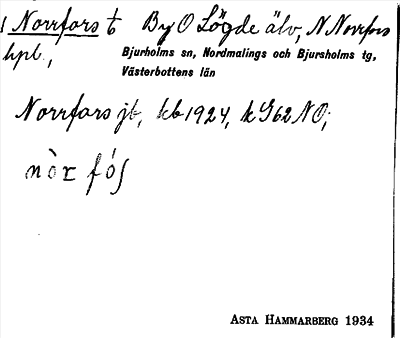 Norrfors t By O Lögde älv, N Norrfors
hpl.,
Bjurholms sn, Nordmalings och Bjursholms tg,
Västerbottens län
Norrfars jb, kb 1924, k G62 NO;
nòr fó∫
ASTA HAMMARBERG 1934